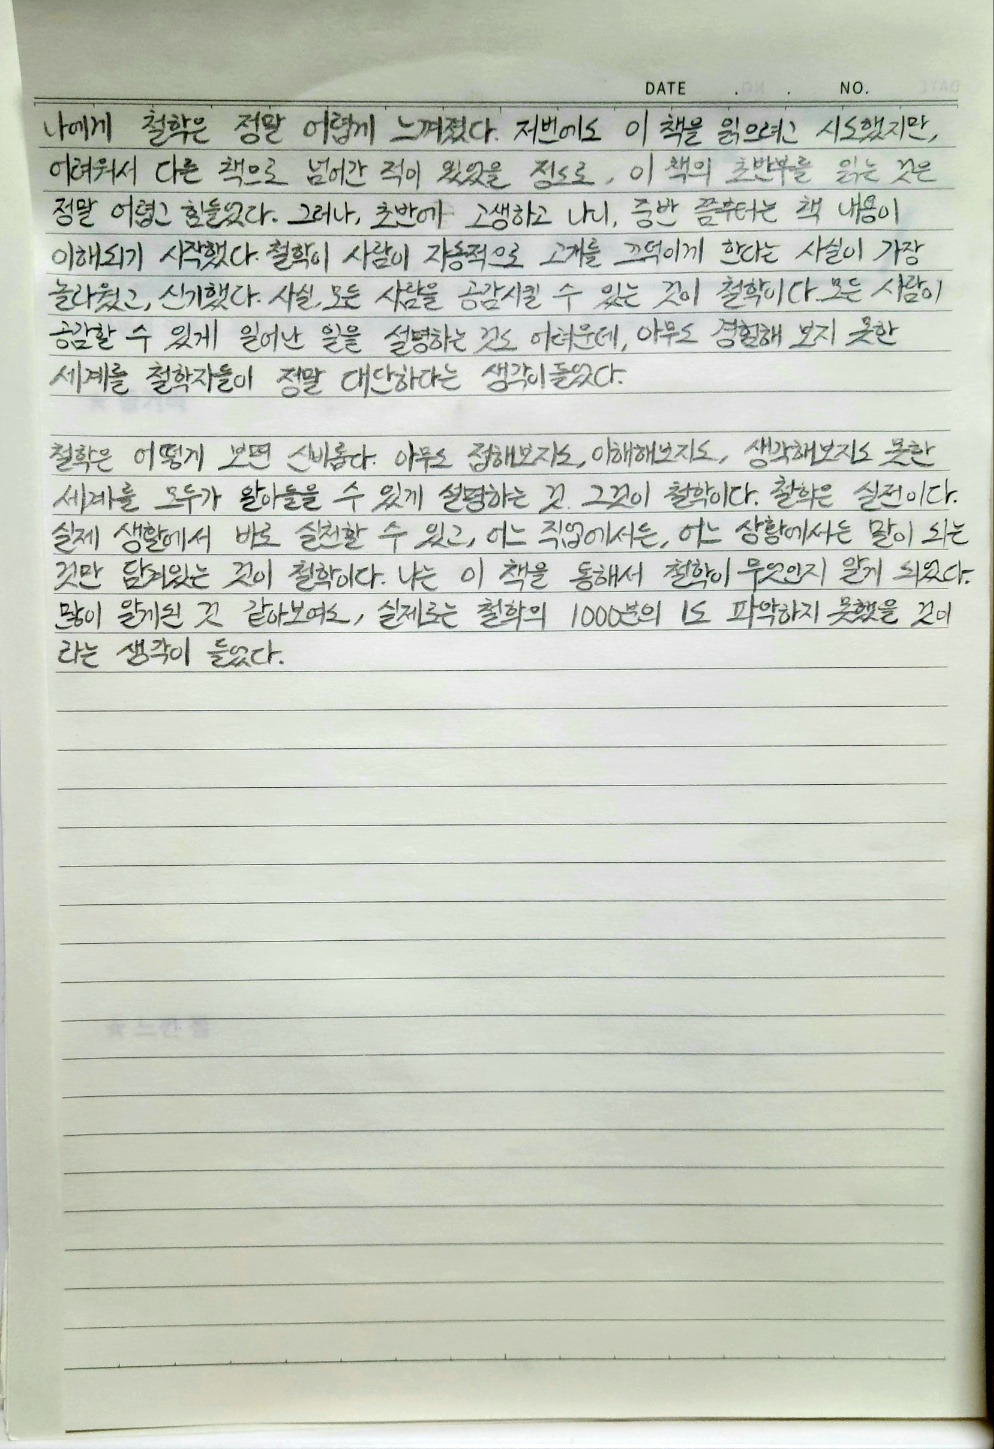 DATE . . NO.
나에게 철학은 정말 어렵게 느껴졌다. 저번에도 이 책을 읽으려고 시도했지만,
어려워서 다른 책으로 넘어간 적이 있었을 정도로, 이 책의 초반부를 읽는 것은
정말 어렵고 힘들었다. 그러나, 초반에 고생하고 나니, 중반 쯤부터는 책 내용이
이해되기 시작했다. 철학이 사람이 자동적으로 고개를 끄덕이게 한다는 사실이 가장
놀라웠고, 신기했다. 사실, 모든 사람을 공감시킬 수 있는 것이 철학이다. 모든 사람이
공감할 수 있게 일어난 일을 설명하는 것도 어려운데, 아무도 경험해 보지 못한
세계를 철학자들이 정말 대단하다는 생각이 들었다.
철학은 어떻게 보면 신비롭다. 아무도 접해보지도, 이해해보지도, 생각해보지도 못한
세계를 모두가 알아들을 수 있게 설명하는 것. 그것이 철학이다. 철학은 실전이다.
실제 생활에서 바로 실천할 수 있고, 어느 직업에서든, 어느 상황에서든 말이 되는
것만 담겨있는 것이 철학이다. 나는 이 책을 통해서 철학이 무엇인지 알게 되었다.
많이 알게된 것 같아보여도, 실제로는 철학의 1000분의 1도 파악하지 못했을 것이
라는 생각이 들었다.